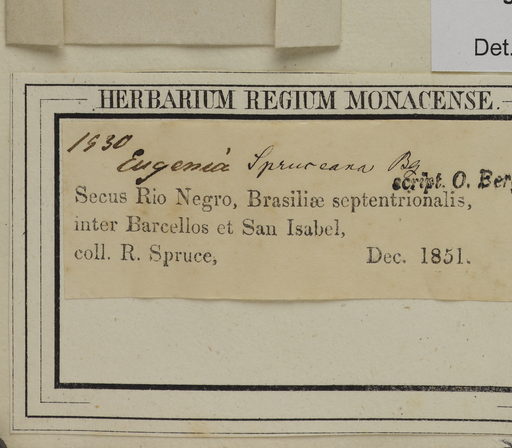 Det.
HERBARIUM REGIUM MONACENSE.
1930
Eugenia Spruceana Bg
script. O. Berg
Secus Rio Negro, Brasiliæ septentrionalis,
inter Barcellos et San Isabel,
coll. R. Spruce, Dec. 1851.